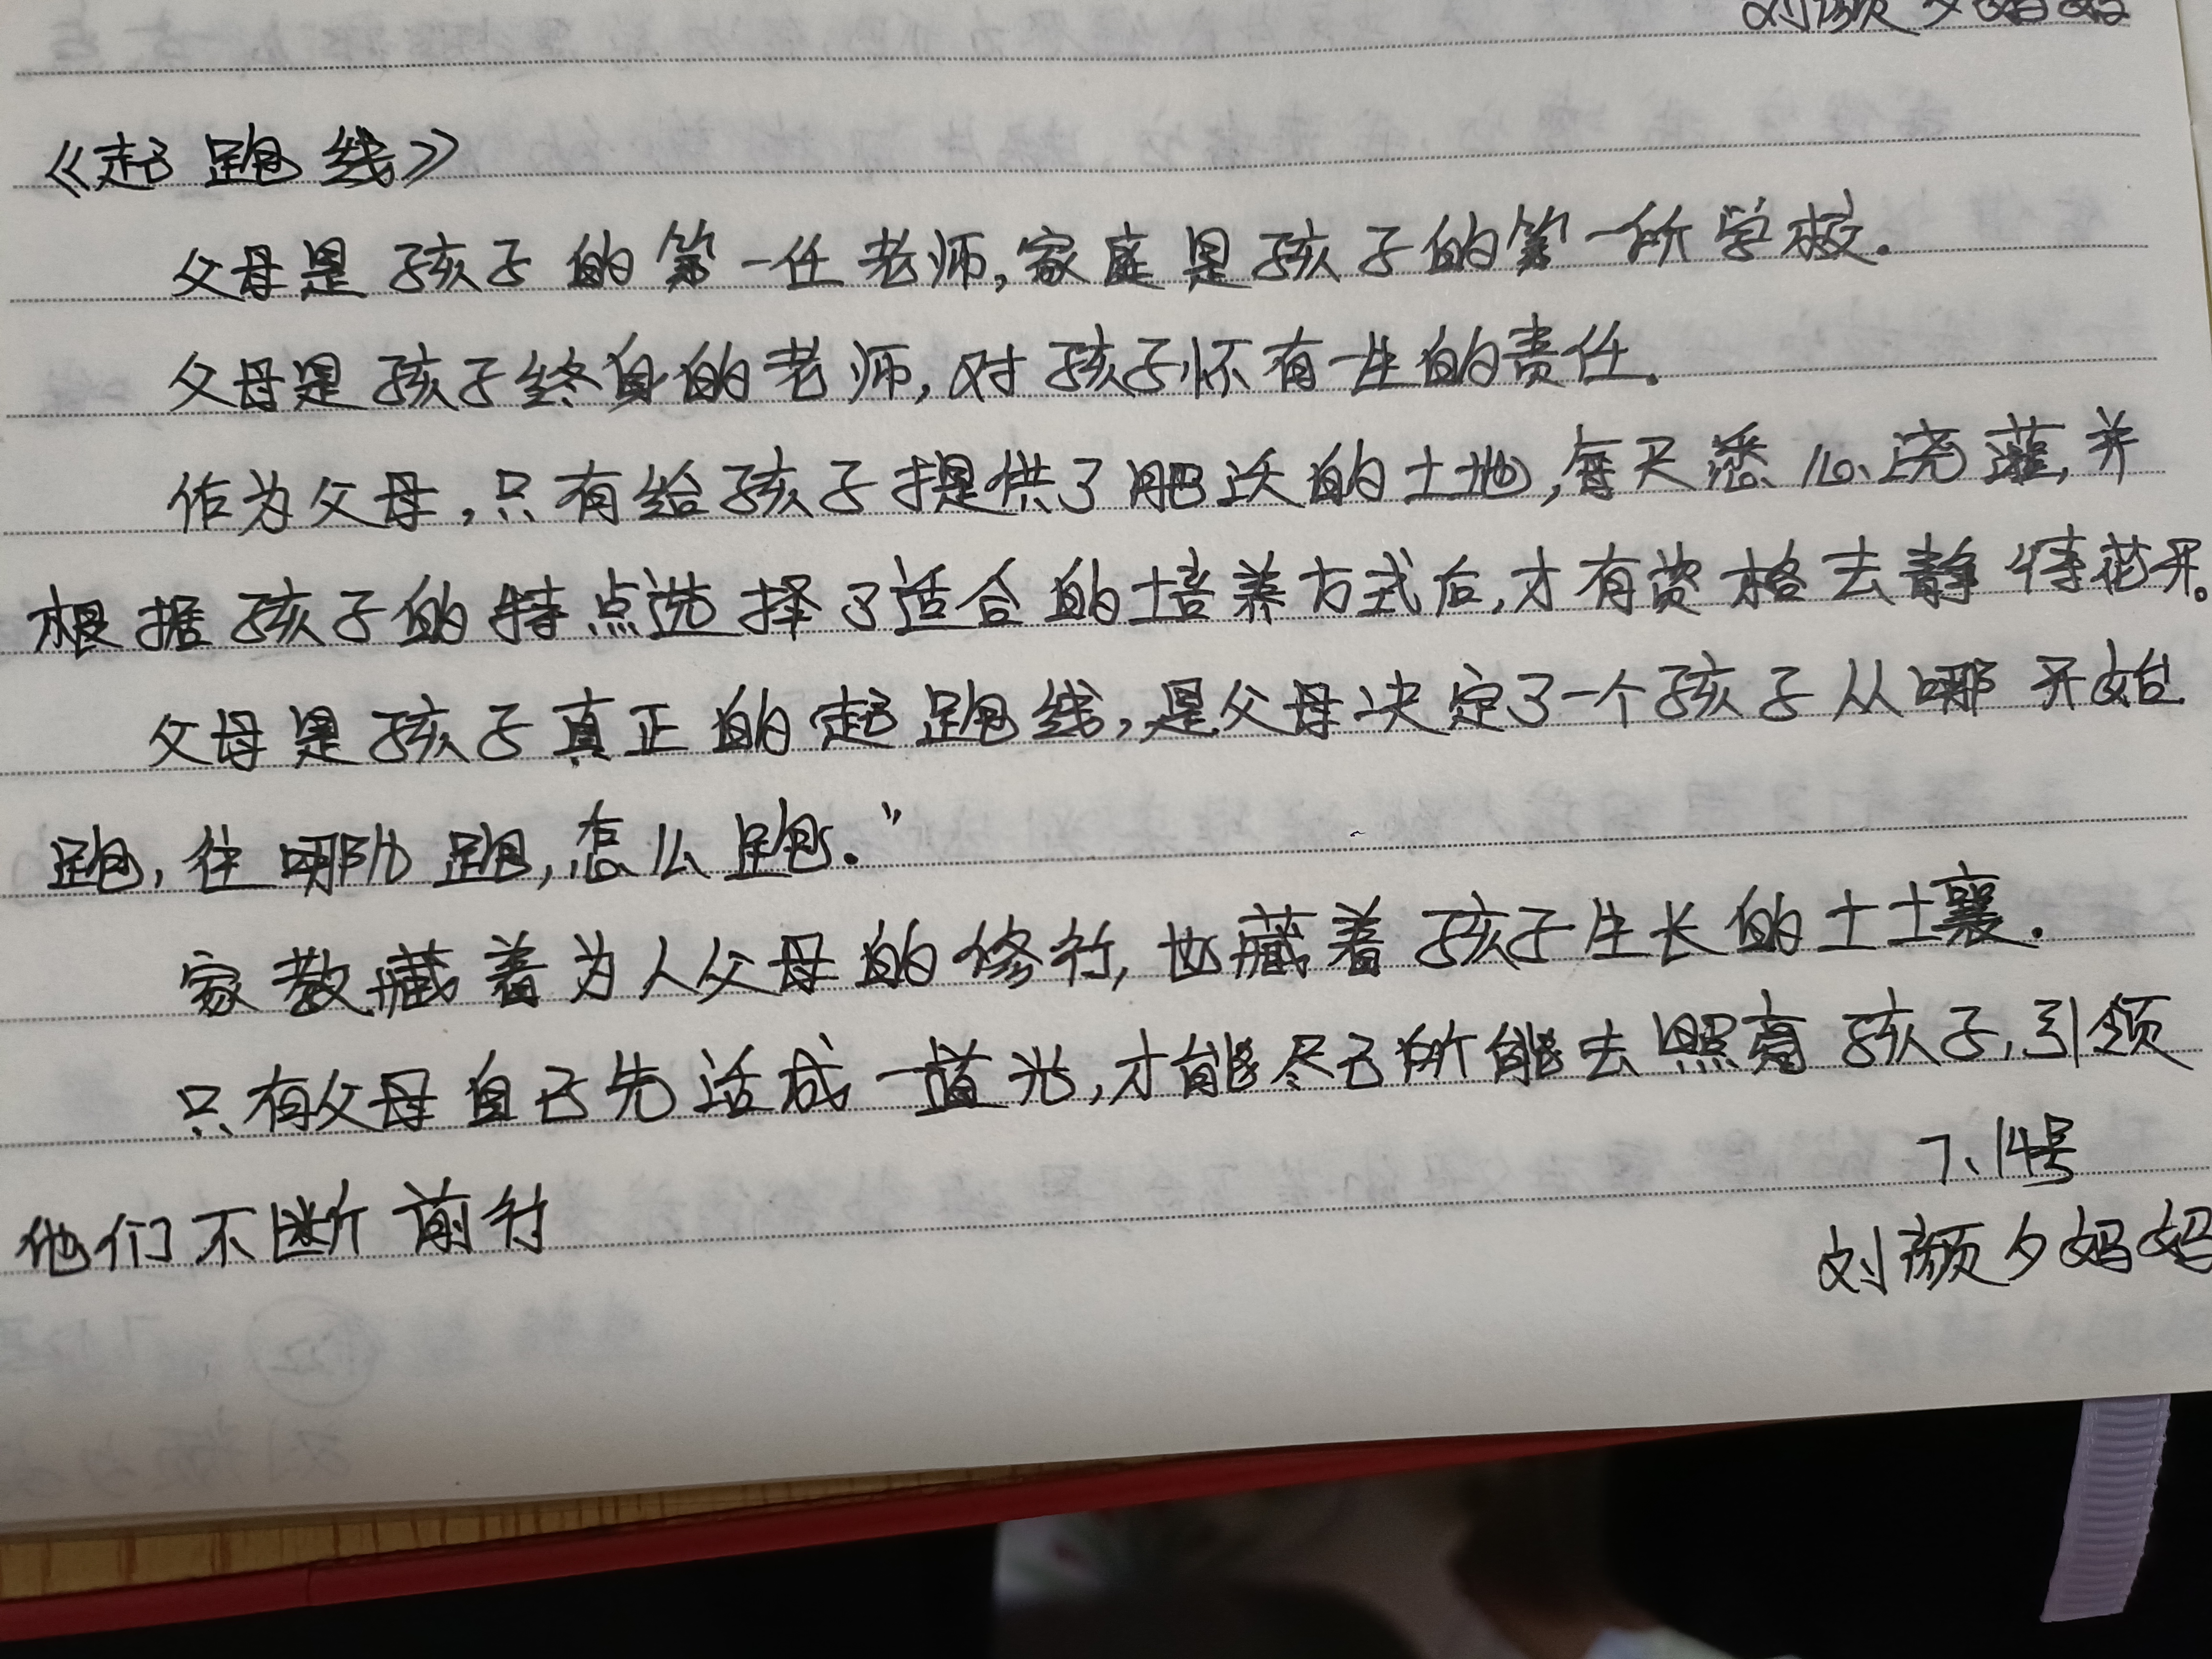 刘颜夕妈妈
《起跑线》
父母是孩子的第一任老师,家庭是孩子的第一所学校.
父母是孩子终身的老师,对孩子怀有一生的责任.
作为父母,只有给孩子提供了肥沃的土地,每天悉心浇灌,并
根据孩子的特点选择了适合的培养方式后,才有资格去静待花开。
父母是孩子真正的起跑线,是父母决定了一个孩子从哪开始
跑,往哪儿跑,怎么跑."
家教藏着为人父母的修行,也藏着孩子生长的土壤.
只有父母自己先活成一道光,才能尽己所能去照亮孩子,引领
他们不断前行
7、14号
刘颜夕妈妈